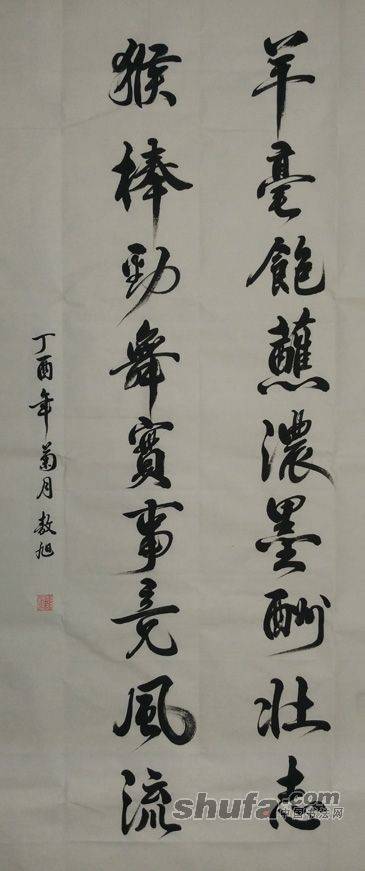 羊毫飽蘸濃墨酬壯志
猴棒勁舞實事竞風流
丁酉年菊月敖旭
shufa.com
中国书法网